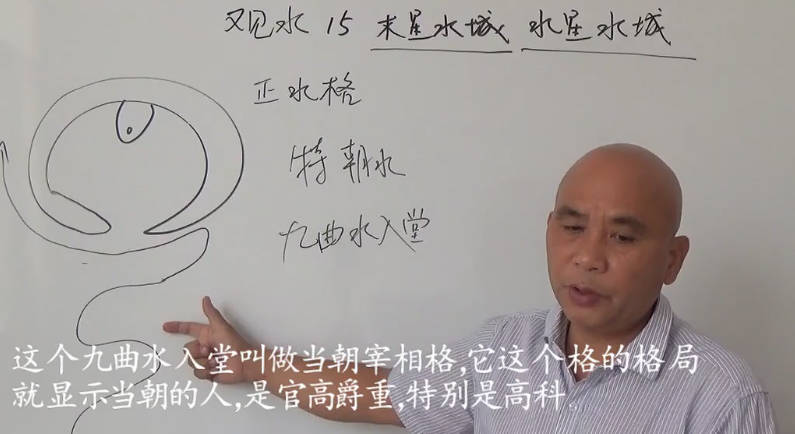 观水 15 木星水城 水星水城
正水格
特朝水
九曲水入堂
这个九曲水入堂叫做当朝宰相格,它这个格的格局
就显示当朝的人,是官高爵重,特别是高科。